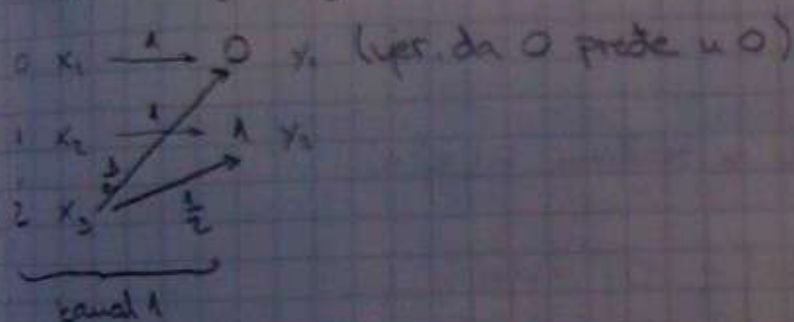 0 x₁ 1 0 y₁ (vjer. da 0 pređe u 0)
1 x₂ 1 1 y₂
2 x₃ 1/2 1/2
kanal 1